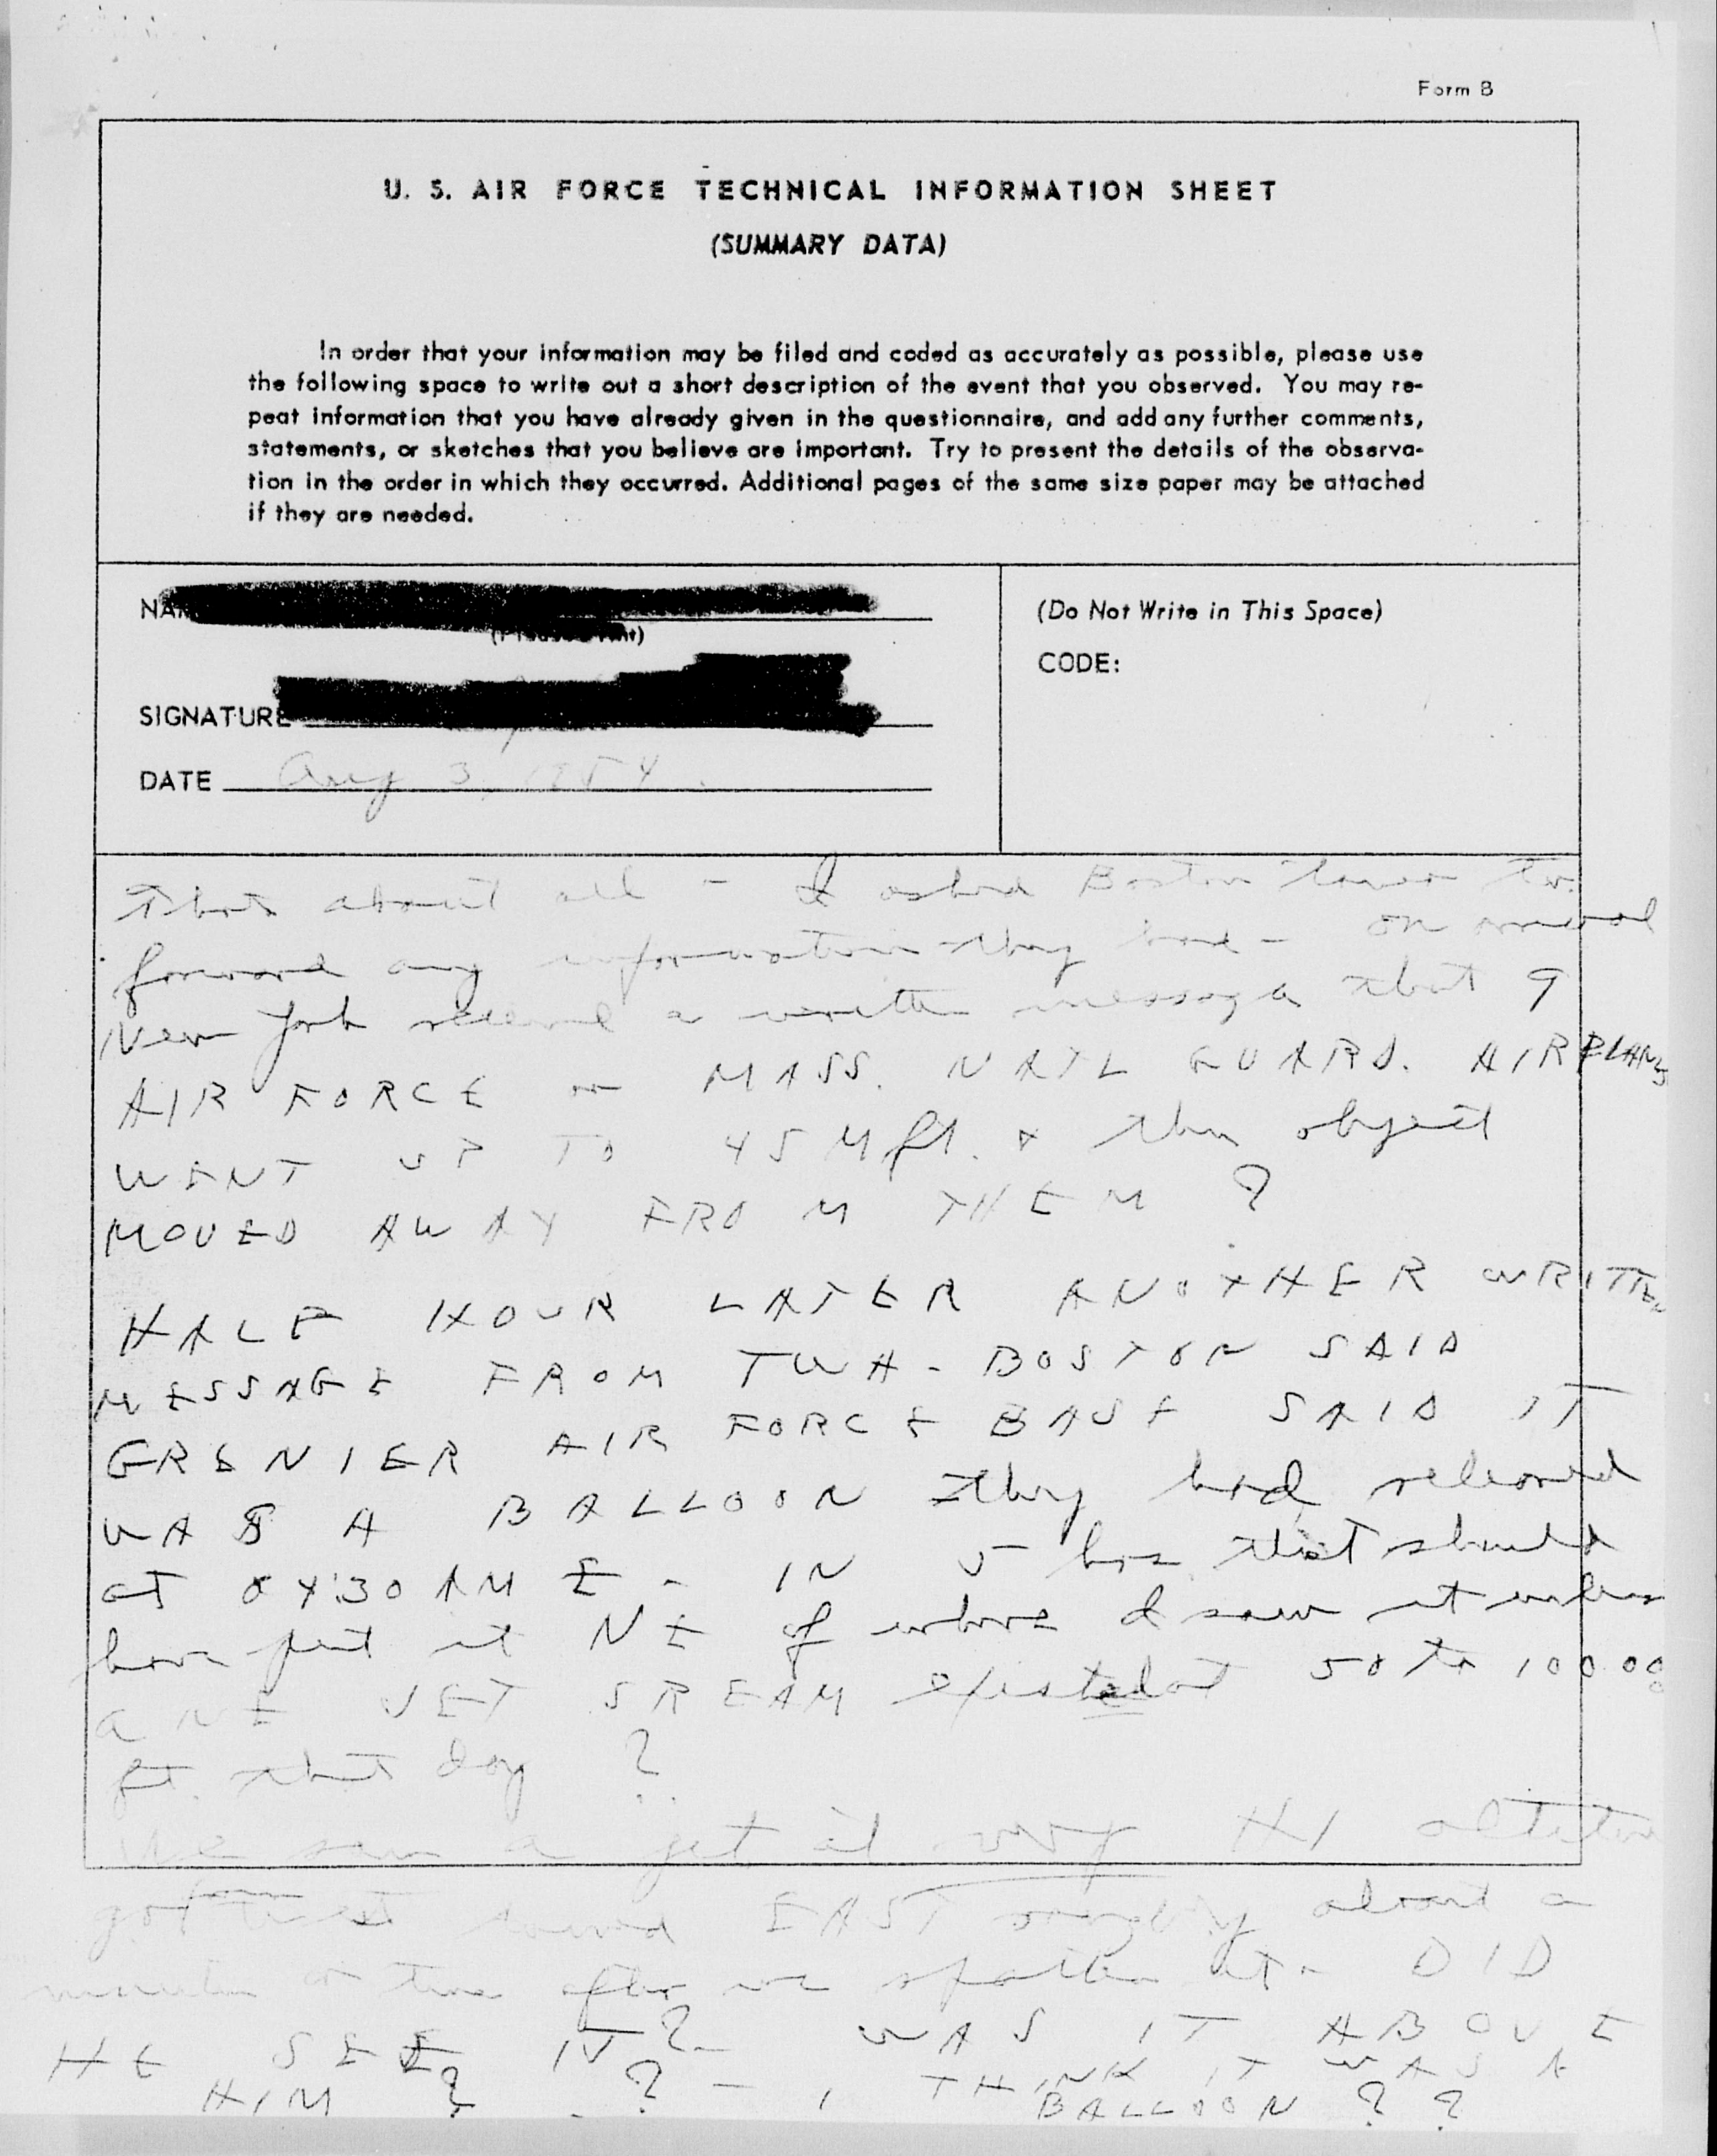 Form B
U. S. AIR FORCE TECHNICAL INFORMATION SHEET
(SUMMARY DATA)
In order that your information may be filed and coded as accurately as possible, please use
the following space to write out a short description of the event that you observed. You may re-
peat information that you have already given in the questionnaire, and add any further comments,
statements, or sketches that you believe are important. Try to present the details of the observa-
tion in the order in which they occurred. Additional pages of the same size paper may be attached
if they are needed.
(Do Not Write in This Space)
CODE:
SIGNATURE
DATE Aug 3, 1954.
Thats about all - I asked Boston tower to
forward any information they had - on arrival
New York received a written message that 9
AIR FORCE or MASS. NATL GUARD. AIRPLANES
WENT UP TO 45 M ft. & the object
MOVED AWAY FROM THEM ?
HALF HOUR LATER ANOTHER WRITTEN
MESSAGE FROM TWA - BOSTON SAID
GRENIER AIR FORCE BASE SAID IT
WAS A BALLOON they had released
at 04:30 AM E - IN 5 hrs that should
have put it NE of where I saw it unless
a NE JET SREAM existed at 50 to 100.000
ft. that day ?
We saw a jet at very HI altitude
EAST about a
minute or two after we spotted it - DID
HE SEE IT ? - WAS IT ABOVE
HIM ? ? - I THINK IT WAS A
BALLOON ? ?